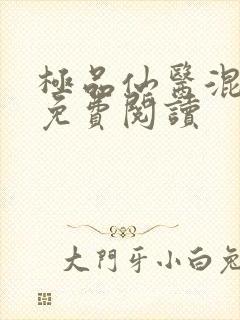 極品仙醫混
免費閱讀
大門牙小白兔